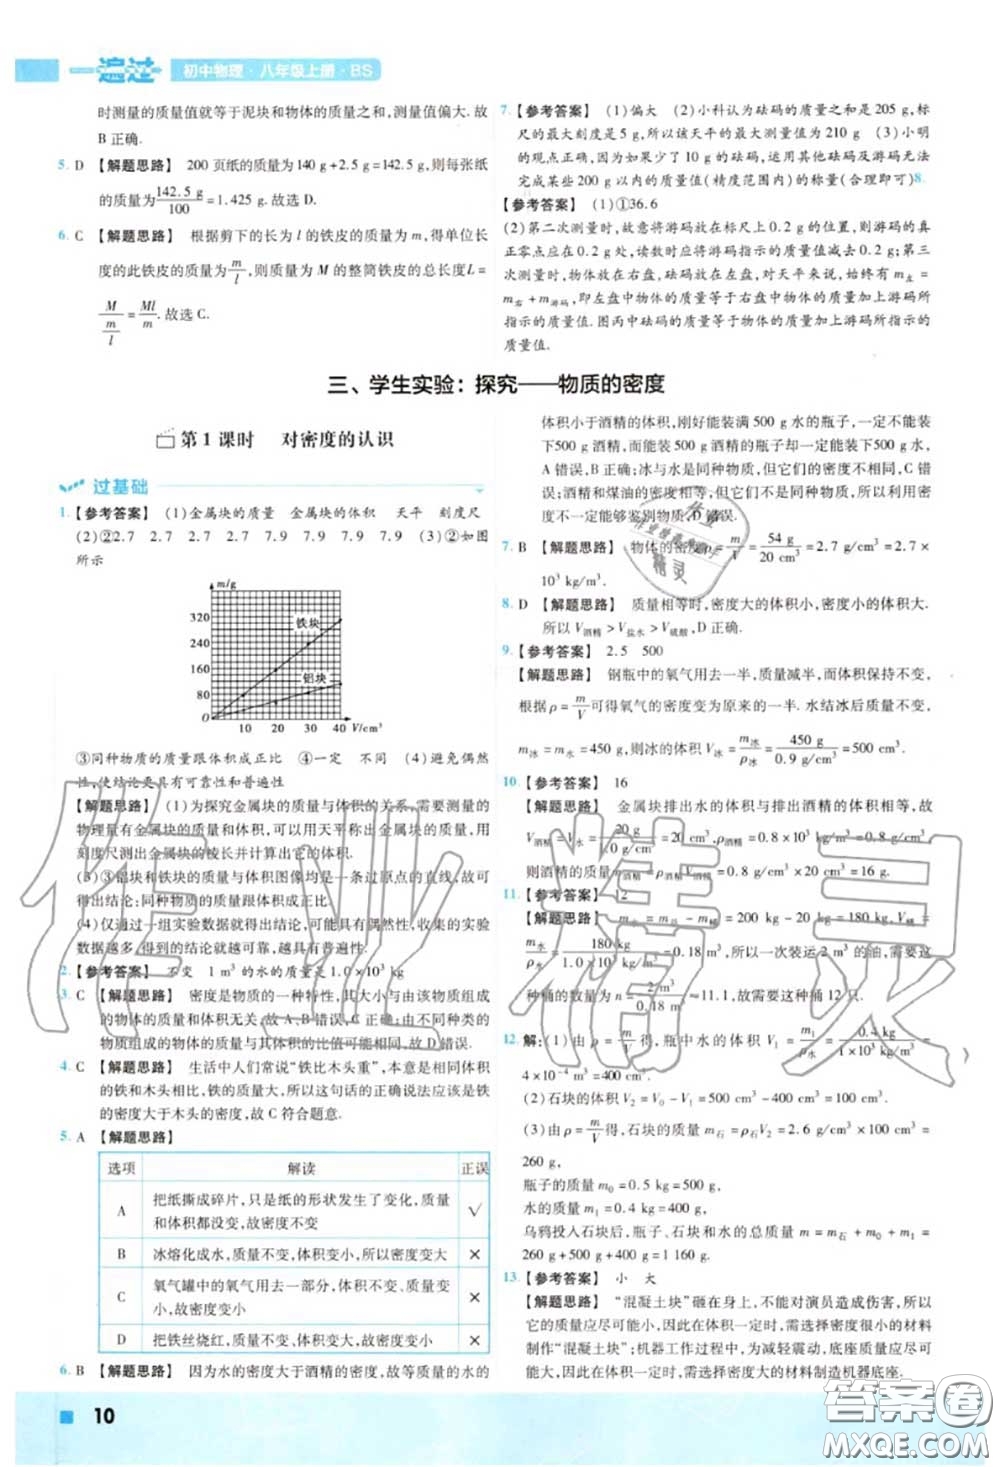 一遍过 初中物理·八年级上册·BS
时测量的质量值就等于泥块和物体的质量之和,测量值偏大.故
B 正确.
5. D 【解题思路】 200 页纸的质量为 140 g+2.5 g=142.5 g,则每张纸
的质量为 142.5 g/100 =1.425 g.故选 D.
6. C 【解题思路】 根据剪下的长为 l 的铁皮的质量为 m,得单位长
度的此铁皮的质量为 m/l,则质量为 M 的整筒铁皮的总长度L=
M/(m/l) = Ml/m.故选 C.
7. 【参考答案】 (1)偏大 (2)小科认为砝码的质量之和是 205 g,标
尺的最大刻度是 5 g,所以该天平的最大测量为 210 g (3)小明
的观点正确,如果少了 10 g 的砝码,运用其余砝码及游码无法
完成某些 200 g 以内的质量值(精度范围内)的称量(合理即可)8.
【参考答案】 (1)①36.6
(2)第二次测量时,故意将游码放在标尺上 0.2 g 的位置,则真
正零点应在 0.2 g 处,读数时应将游码指示的质量值减去 0.2 g;第三
次测量时,物体放在右盘,砝码放在左盘,对天平来说,始终有 m左=
m右+m游码,即左盘中物体的质量等于右盘中物体的质量加上游码所
指示的质量值.图丙中砝码的质量等于物体的质量加上游码所指示的
质量值.
三、学生实验：探究——物质的密度
第 1 课时 对密度的认识
过基础
1. 【参考答案】 (1)金属块的质量 金属块的体积 天平 刻度尺
(2)②2.7 2.7 2.7 7.9 7.9 7.9 (3)②如图
所示
m/g
320
240
160
80
0
铁块
铝块
10 20 30 40 V/cm³
③同种物质的质量跟体积成正比 ④一定 不同 (4)避免偶然
性,使结论更具有可靠性和普遍性
【解题思路】 (1)为探究金属块的质量与体积的关系,需要测量的
物理量有金属块的质量和体积,可以用天平称出金属块的质量,用
刻度尺测出金属块的棱长并计算出它的体积.
(3)③铝块和铁块的质量与体积图像均是一条过原点的直线,故可
得出结论:同种物质的质量跟体积成正比.
(4)仅通过一组实验数据就得出结论,可能具有偶然性,收集的实验
数据越多,得到的结论就越可靠,越具有普遍性.
2. 【参考答案】 不变 1 m³ 的水的质量是 1.0×10³ kg
3. C 【解题思路】 密度是物质的一种特性,其大小与由该物质组成
的物体的质量和体积无关,故 A、B 错误,C 正确;由不同
物质组成的物体的质量与其体积的比值可能相同,故 D 错误.
4. C 【解题思路】 生活中人们常说“铁比木头重”,本意是相同体积
的铁和木头相比,铁的质量大,所以这句话的正确说法应该是:铁
的密度大于木头的密度,故 C 符合题意.
5. A 【解题思路】
选项 解读 正误
A 把纸撕成碎片,只是纸的形状发生了变化,质量
和体积都没变,故密度不变 √
B 冰熔化成水,质量不变,体积变小,所以密度变大 ×
C 氧气罐中的氧气用去一部分,体积不变、质量变
小,故密度变小 ×
D 把铁丝烧红,质量不变、体积变大,故密度变小 ×
6. B 【解题思路】 因为水的密度大于酒精的密度,故等质量的水的
体积小于酒精的体积,刚好能装满 500 g 水的瓶子,一定不能装
下500 g 酒精,而能装 500 g 酒精的瓶子却一定能装 500 g 水,
A 错误,B 正确;冰与水是同种物质,但密度不相同,C
错误;酒精和煤油的密度相同,但它们是不同的物质,用密
度不一定能够鉴别物质,D 错误.
7. B 【解题思路】 物体的密度ρ=m/V=54 g/20 cm³=2.7 g/cm³=2.7×
10³ kg/m³.
8. D 【解题思路】 质量相等时,密度大的体积小,密度小的体积大.
所以 V酒精>V盐水>V硫酸,D 正确.
9. 【参考答案】 2.5 500
【解题思路】 钢瓶中的氧气用去一半,质量减半,而体积保持不变,
根据 ρ=m/V可得氧气的密度变为原来的一半.水结冰后质量不变,
m冰=m水=450 g,则冰的体积 V冰=m冰/ρ冰=450 g/0.9 g/cm³=500 cm³.
10. 【参考答案】 16
【解题思路】 金属块排出水的体积与排出酒精的体积相等,故
V酒精=V水=20 g/1.0 g/cm³=20 cm³,ρ酒精=0.8×10³ kg/m³=0.8 g/cm³
则酒精的质量 m酒精=ρ酒精V酒精=0.8 g/cm³×20 cm³=16 g.
11. 【参考答案】 12
【解题思路】 m水=m总-m桶=200 kg-20 kg=180 kg,V桶=V水=
m水/ρ水=180 kg/1.0×10³ kg/m³=0.18 m³,所以一次装运 2 m³ 的水需要
这种桶的数量为 n=2 m³/0.18 m³≈11.1,故需要这种桶 12 只.
12. 解:(1)由 ρ=m/V得,瓶中水的体积 V₁=m₁/ρ水=0.4 kg/1×10³ kg/m³=
4×10⁻⁴ m³=400 cm³.
(2)石块的体积 V₂=V₀-V₁=500 cm³-400 cm³=100 cm³.
(3)由 ρ=m/V得,石块的质量 m石=ρ石V₂=2.6 g/cm³×100 cm³=
260 g.
瓶子的质量 m₀=0.5 kg=500 g,
水的质量 m₁=0.4 kg=400 g,
乌鸦投入石块后,瓶子、石块和水的总质量 m=m石+m₀+m₁=
260 g+500 g+400 g=1 160 g.
13. 【参考答案】 小 大
【解题思路】 “混凝土块”砸在身上,不能对演员造成伤害,所以它
的质量应尽可能小,在体积一定时,需选择密度很小的材料
制作“混凝土块”;机器工作过程中,为减小振动,底座质量应尽可
能大,故在体积一定时,需选择密度大的材料制造机器底座.
10
作业精灵
答案圈
MXQE.COM